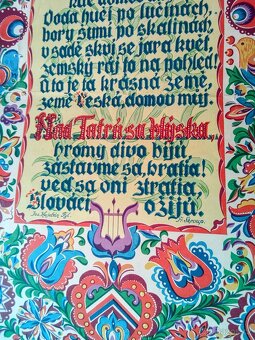 kde domov můj
Voda hučí po lučinách,
bory šumí po skalinách,
v sadě skví se jara květ,
zemský ráj to na pohled!
A to je ta krásná země,
země česká, domov můj.
Nad Tatrú sa blýska,
hromy divo bijú.
zastavme sa, bratia!
veď sa oni ztratia,
Slováci ožijú.